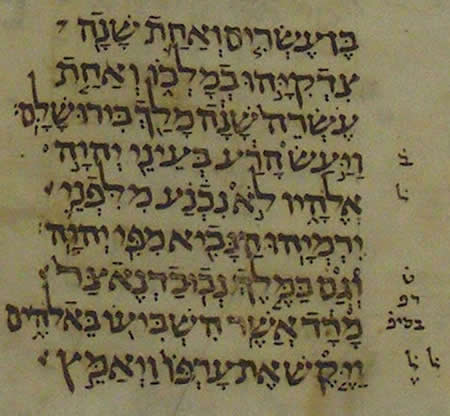 בֶּן עֶשְׂרִים וְאַחַת שָׁנָה
צִדְקִיָּהוּ בְמָלְכוֹ וְאַחַת
עֶשְׂרֵה שָׁנָה מָלַךְ בִּירוּשָׁלָםִ׃
וַיַּעַשׂ הָרַע בְּעֵינֵי יְהוָה ב̇
אֱלֹהָיו לֹא נִכְנַע מִלִּפְנֵי ל̇
יִרְמְיָהוּ הַנָּבִיא מִפִּי יְהוָה
וְגַם בַּמֶּלֶךְ נְבוּכַדְנֶאצַּר ט̇
מָרָד אֲשֶׁר הִשְׁבִּיעוֹ בֵּאלֹהִים
וַיֶּקֶשׁ אֶת עָרְפּוֹ וַיְאַמֵּץ ל̇ ל̇